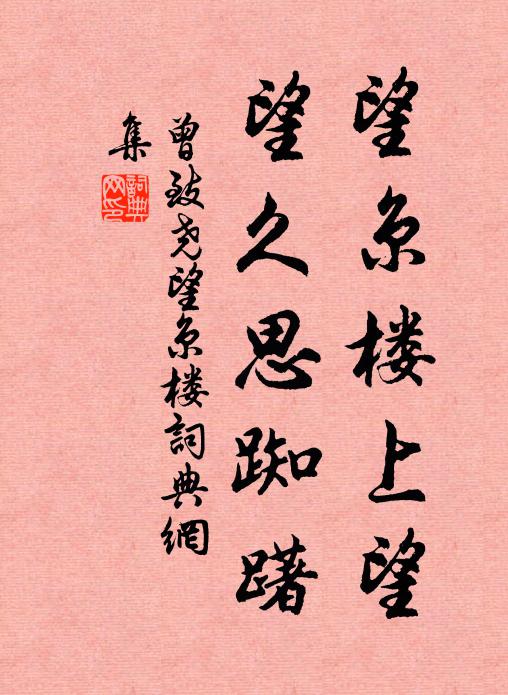 望京楼上望
望久思踟躇
曾致尧望京楼詞典網
集
詞典
网印